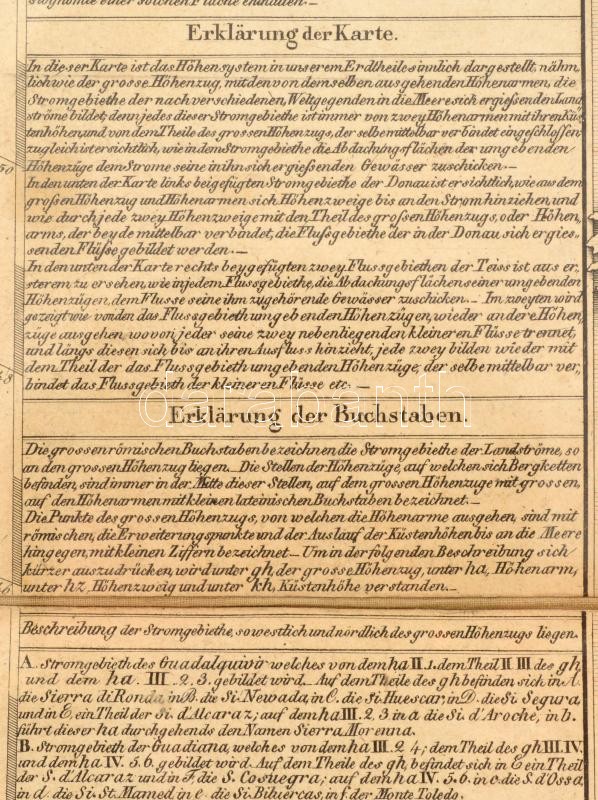 siognomie einer solchen Fläche enthalten.—
Erklärung der Karte.
In dieser Karte ist das Höhensystem in unserem Erdtheile sinnlich dargestellt, nähm,
lich wie der grosse Höhenzug, mit den von demselben ausgehenden Höhenarmen, die
Stromgebiethe der nach verschiedenen Weltgegenden in die Meere sich ergießenden Land
ströme bildet; denn jedes dieser Stromgebiethe ist immer von zwey Höhenarmen mit ihren Küs,
tenhöhen, und von dem Theile des grossen Höhenzugs, der selbe mittelbar verbindet eingeschlossen
zugleich ist ersichtlich, wie in dem Stromgebiethe die Abdachungsflächen der umgebenden
Höhenzüge dem Strome seine in ihn sich ergießenden Gewässer zuschicken.—
In den unten der Karte links beigefügten Stromgebiethe der Donau ist ersichtlich, wie aus dem
großen Höhenzug und Höhenarmen sich Höhenzweige bis an den Strom hinziehen, und
wie durch jede zwey Höhenzweige mit den Theil des großen Höhenzugs, oder Höhen,
arms, der beyde mittelbar verbindet, die Flußgebiethe der in der Donau sich ergies=
senden Flüße gebildet werden.—
In den unten der Karte rechts beygefügten zwey Flussgebiethen der Teiss ist aus er,
sterem zu ersehen, wie in jedem Flussgebiethe, die Abdachungsflächen seiner umgebenden
Höhenzügen, dem Flusse seine ihm zugehörende Gewässer zuschicken.— Im zweyten wird
gezeigt wie von den das Flussgebieth umgebenden Höhenzügen, wieder andere Höhen,
züge ausgehen wovon jeder seine zwey nebenliegenden kleineren Flüsse trennet,
und längs diesen sich bis an ihren Ausfluss hinzieht, jede zwey bilden wieder mit
dem Theil der das Flussgebieth umgebenden Höhenzüge, der selbe mittelbar ver,
bindet das Flussgebieth der kleineren Flüsse etc.—
Erklärung der Buchstaben.
Die grossen römischen Buchstaben bezeichnen die Stromgebiethe der Landströme, so
an den grossen Höhenzug liegen.— Die Stellen der Höhenzüge, auf welchen sich Bergketten
befinden, sind immer in der Mitte dieser Stellen, auf dem grossen Höhenzuge mit grossen,
auf den Höhenarmen mit kleinen lateinischen Buchstaben bezeichnet.—
Die Punkte des grossen Höhenzugs, von welchen die Höhenarme ausgehen, sind mit
römischen, die Erweiterungspunkte und der Auslauf der Küstenhöhen bis an die Meere
hingegen, mit kleinen Ziffern bezeichnet.— Um in der folgenden Beschreibung sich
kürzer auszudrücken, wird unter gh, der grosse Höhenzug, unter ha, Höhenarm,
unter hz, Höhenzweig und unter kh, Küstenhöhe verstanden.—
Beschreibung der Stromgebiethe, so westlich und nördlich des grossen Höhenzugs liegen.
A. Stromgebieth des Guadalquivir welches von dem ha II. 1. dem Theil II III des gh
und dem ha. III. 2. 3. gebildet wird. Auf dem Theile des gh befinden sich in A.
die Sierra di Ronda, in B. die Si. Newada, in C. die Si. Huescar, in D. die Si Segura
und in E, ein Theil der Si. d'Alcaraz; auf dem ha III. 2. 3 in a die Si. d'Aroche, in b.
führt dieser ha durchgehends den Namen Sierra Morenna.
B. Stromgebieth der Guadiana, welches von dem ha III. 2 4; dem Theil des gh III. IV.
und dem ha IV. 5. 6. gebildet wird. Auf dem Theile des gh, befindet sich in E ein Theil
der S. d'Alcaraz und in F, die S. Cosuegra; auf dem ha IV. 5. 6. in c. die S. d'Ossa,
in d. die Si. St. Mamed, in e. die Si. Biluercas, in f. der Monte Toledo.
50
48
46
darabanth